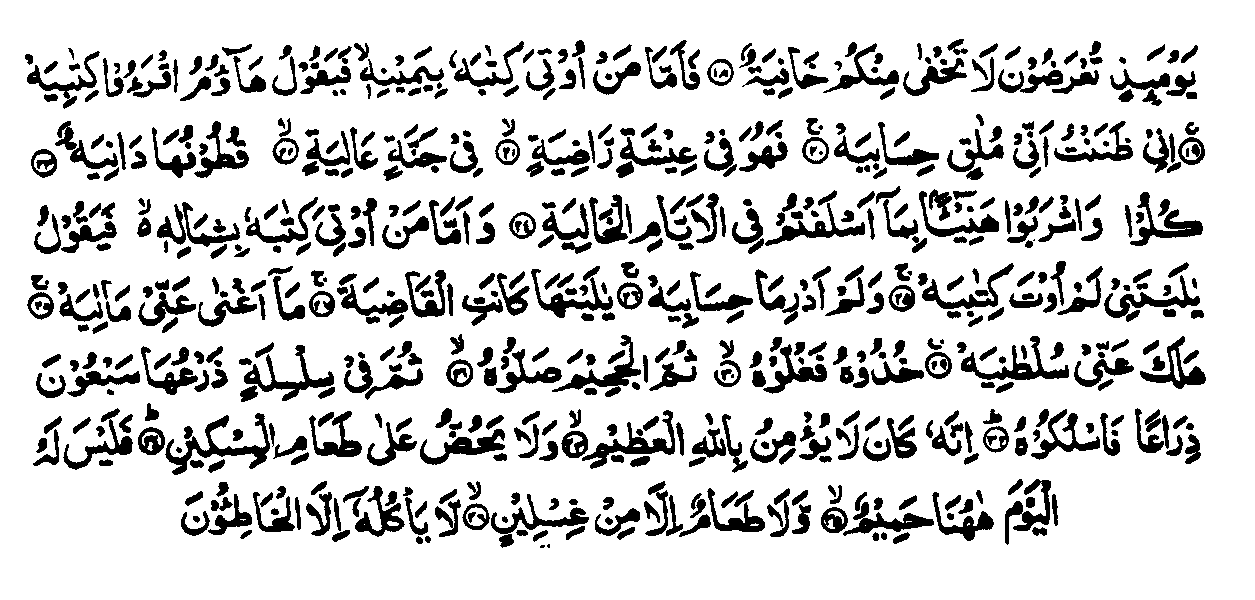 يَوْمَىِٕذٍ تُعْرَضُوْنَ لَا تَخْفٰى مِنْكُمْ خَافِيَةٌ ۝۱۸ فَاَمَّا مَنْ اُوْتِيَ كِتٰبَهٗ بِيَمِيْنِهٖ ۙ فَيَقُوْلُ هَآؤُمُ اقْرَءُوْا كِتٰبِيَهْ
ۚ‏۝۱۹ اِنِّيْ ظَنَنْتُ اَنِّيْ مُلٰقٍ حِسَابِيَهْ ۚ‏۝۲۰ فَهُوَ فِيْ عِيْشَةٍ رَّاضِيَةٍ ۙ‏۝۲۱ فِيْ جَنَّةٍ عَالِيَةٍ ۙ‏۝۲۲ قُطُوْفُهَا دَانِيَةٌ ۝۲۳
كُلُوْا وَاشْرَبُوْا هَنِيْٓـًٔۢا بِمَآ اَسْلَفْتُمْ فِي الْاَيَّامِ الْخَالِيَةِ ۝۲۴ وَاَمَّا مَنْ اُوْتِيَ كِتٰبَهٗ بِشِمَالِهٖ ۙ۬ فَيَقُوْلُ
يٰلَيْتَنِيْ لَمْ اُوْتَ كِتٰبِيَهْ ۚ‏۝۲۵ وَلَمْ اَدْرِ مَا حِسَابِيَهْ ۚ‏۝۲۶ يٰلَيْتَهَا كَانَتِ الْقَاضِيَةَ ۚ‏۝۲۷ مَآ اَغْنٰى عَنِّيْ مَالِيَهْ ۚ‏۝۲۸
هَلَكَ عَنِّيْ سُلْطٰنِيَهْ ۚ‏۝۲۹ خُذُوْهُ فَغُلُّوْهُ ۙ‏۝۳۰ ثُمَّ الْجَحِيْمَ صَلُّوْهُ ۙ‏۝۳۱ ثُمَّ فِيْ سِلْسِلَةٍ ذَرْعُهَا سَبْعُوْنَ
ذِرَاعًا فَاسْلُكُوْهُ ؕ‏۝۳۲ اِنَّهٗ كَانَ لَا يُؤْمِنُ بِاللّٰهِ الْعَظِيْمِ ۙ‏۝۳۳ وَلَا يَحُضُّ عَلٰى طَعَامِ الْمِسْكِيْنِ ؕ‏۝۳۴ فَلَيْسَ لَهُ
الْيَوْمَ هٰهُنَا حَمِيْمٌ ۙ‏۝۳۵ وَّلَا طَعَامٌ اِلَّا مِنْ غِسْلِيْنٍ ۙ‏۝۳۶ لَّا يَاْكُلُهٗٓ اِلَّا الْخَاطِـُٔوْنَ